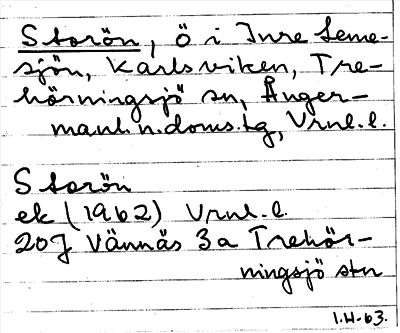 Storön, ö i Inre Leme-
sjön, Karlsviken, Tre-
hörningsjö sn, Ånger-
manl. n. doms.bg, Vrnl. l.
Storön
ek (1962) Vrnl. l.
20J Vännäs 3a Trehör-
ningsjö stn
I.H-63.